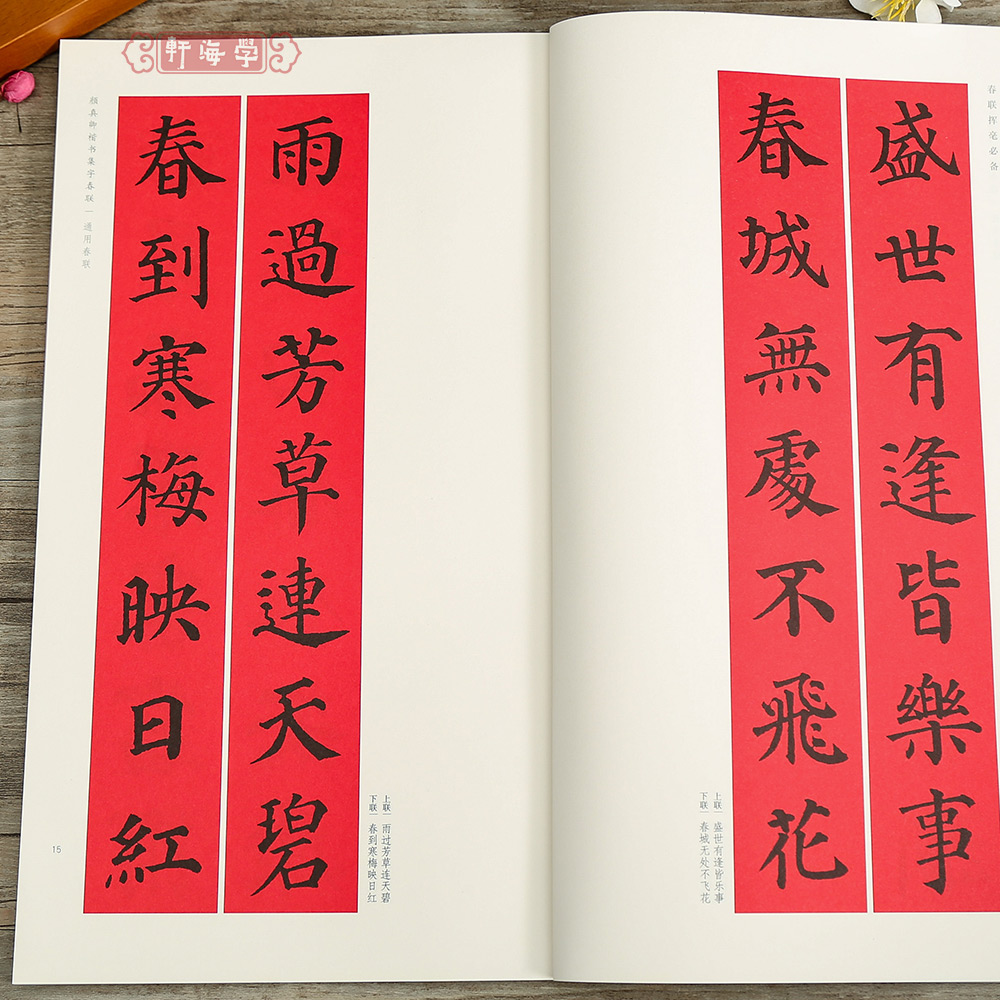 學海軒
雨過芳草連天碧
春到寒梅映日紅
上联 | 雨过芳草连天碧
下联 | 春到寒梅映日红
颜真卿楷书集字春联 | 通用春联
15
春联挥毫必备
盛世有逢皆樂事
春城無處不飛花
上联 | 盛世有逢皆乐事
下联 | 春城无处不飞花